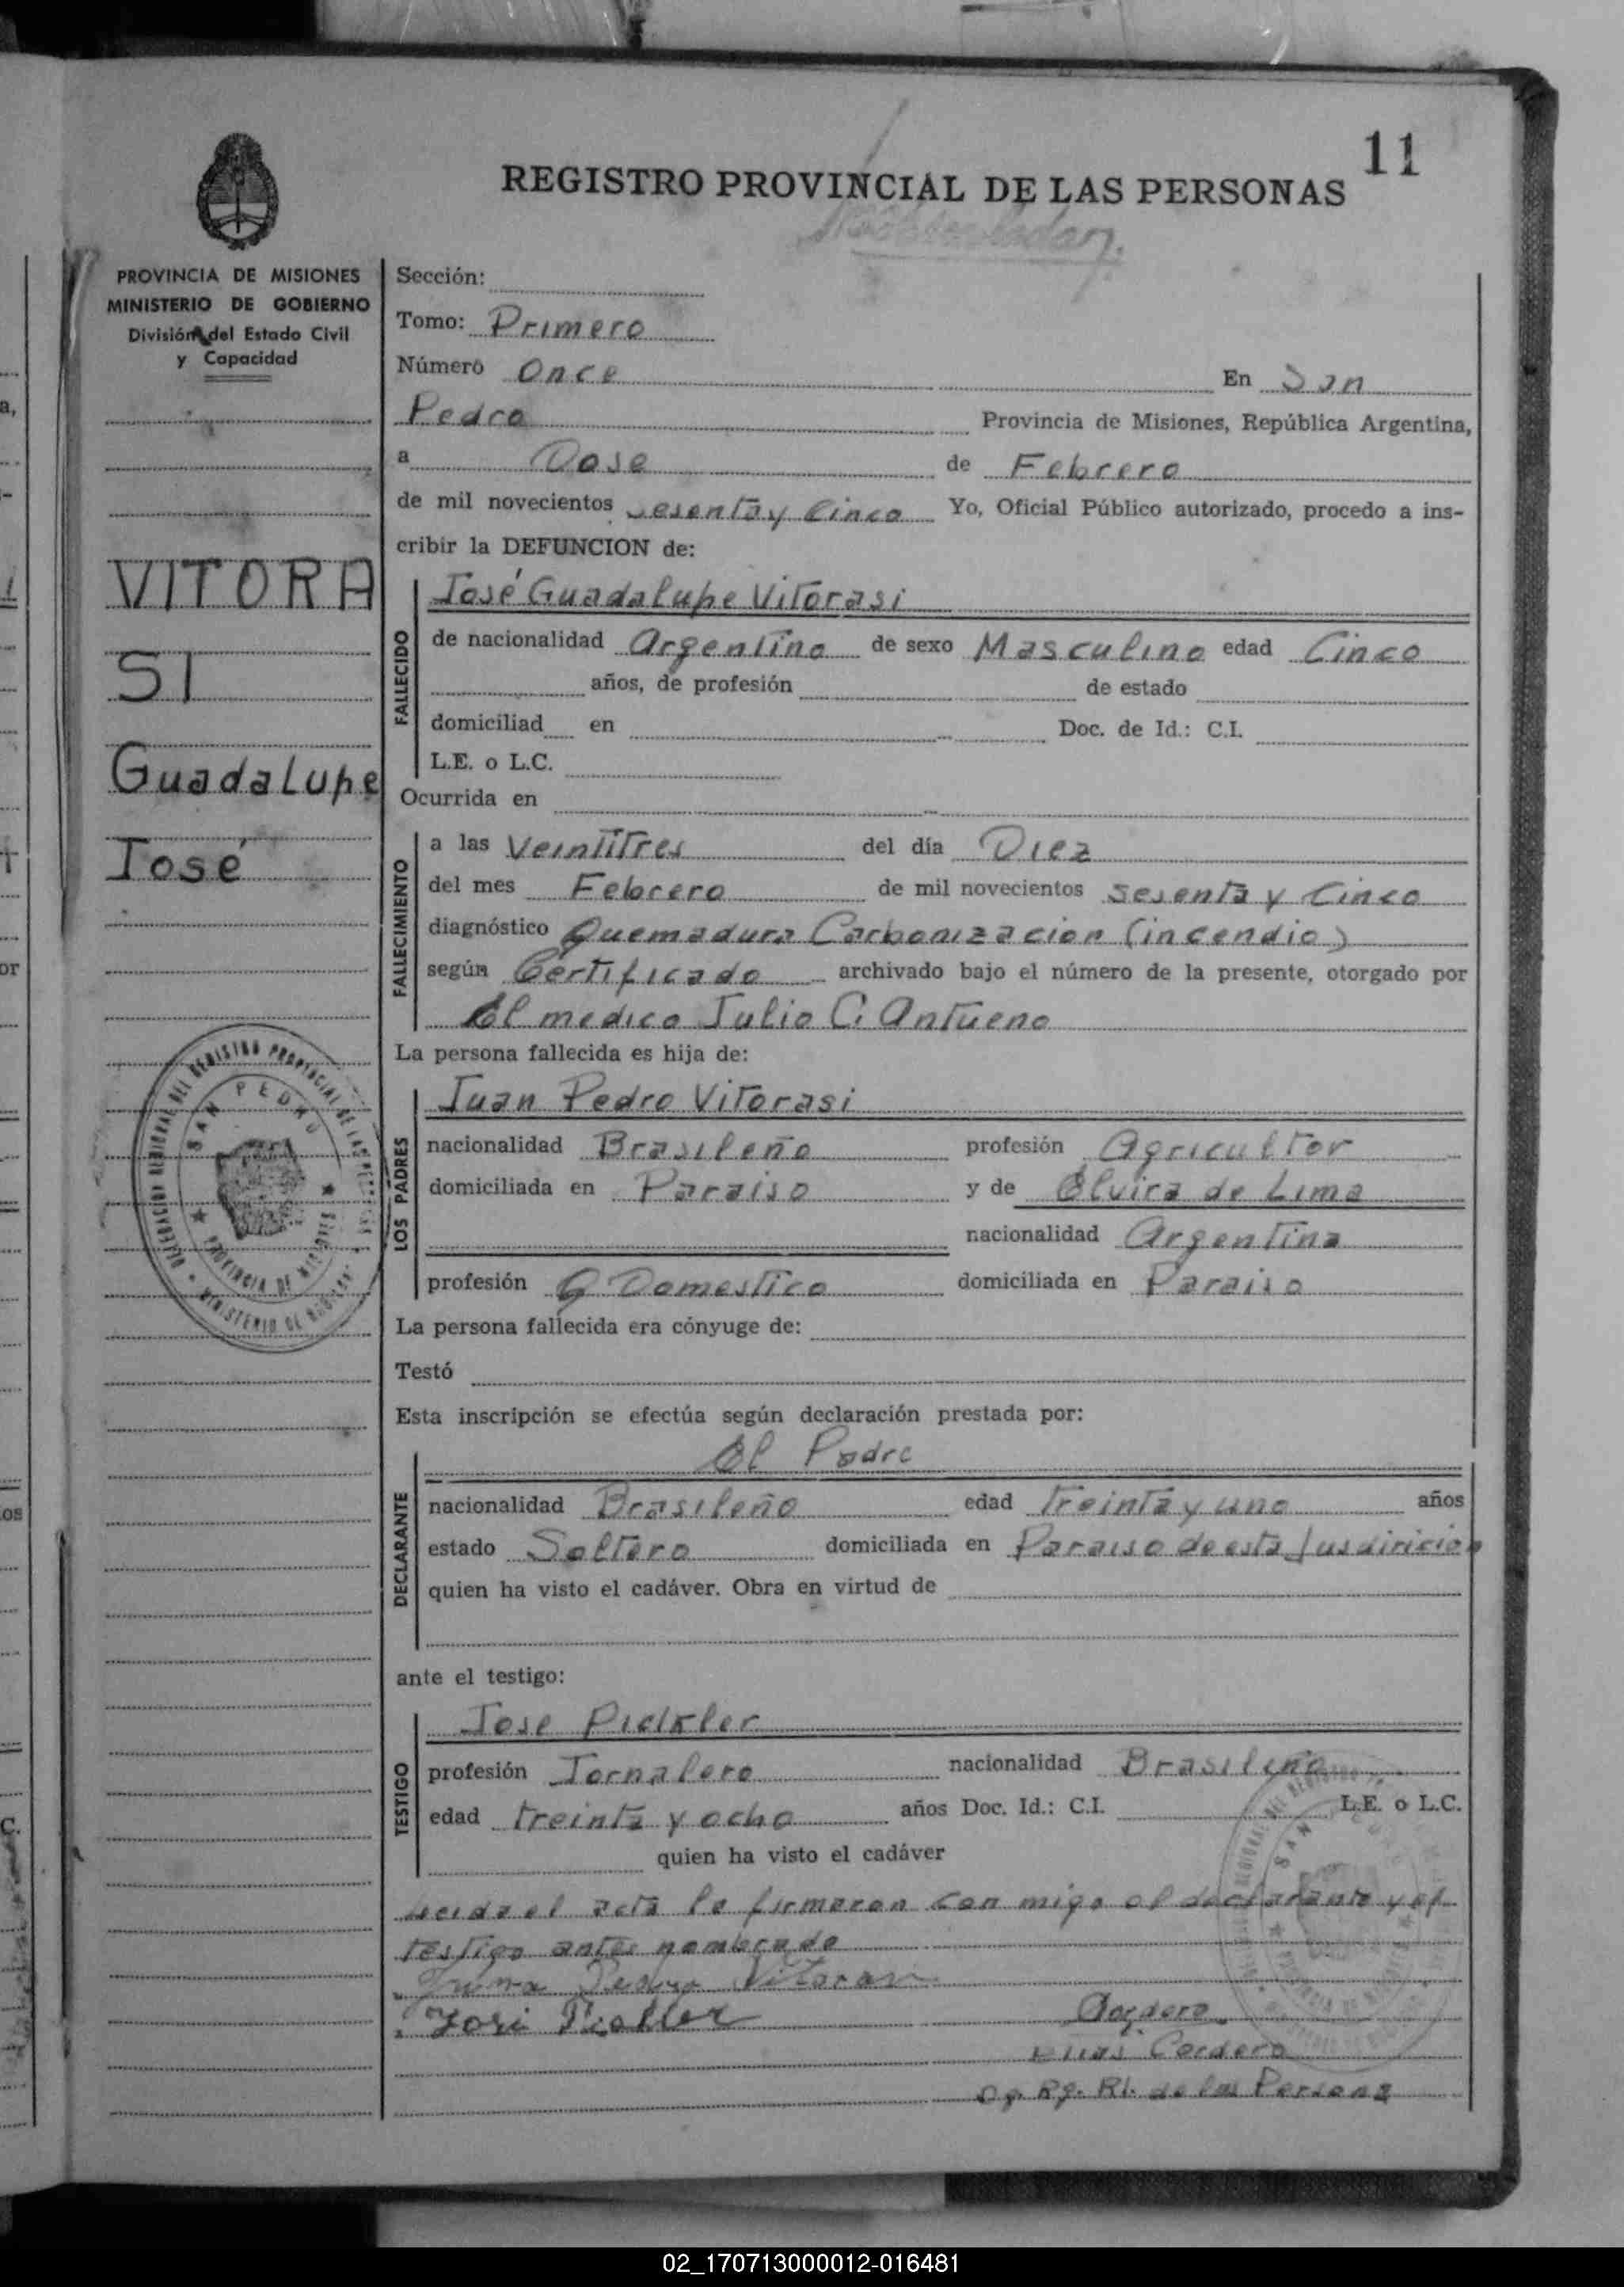 11
REGISTRO PROVINCIAL DE LAS PERSONAS
PROVINCIA DE MISIONES
MINISTERIO DE GOBIERNO
División del Estado Civil
y Capacidad
VITORA
SI
Guadalupe
José
Sección:
Tomo: Primero
Número Once En San
Pedro Provincia de Misiones, República Argentina,
a Dose de Febrero
de mil novecientos sesenta y Cinco Yo, Oficial Público autorizado, procedo a ins-
cribir la DEFUNCION de:
FALLECIDO
José Guadalupe Vitorasi
de nacionalidad Argentino de sexo Masculino edad Cinco
años, de profesión de estado
domiciliad en Doc. de Id.: C.I.
L.E. o L.C.
Ocurrida en
FALLECIMIENTO
a las Veintitres del día Diez
del mes Febrero de mil novecientos sesenta y Cinco
diagnóstico Quemadura Carbonizacion (incendio)
según Certificado archivado bajo el número de la presente, otorgado por
El medico Julio C. Antueno
La persona fallecida es hija de:
LOS PADRES
Juan Pedro Vitorasi
nacionalidad Brasileño profesión Agricultor
domiciliada en Paraiso y de Elvira de Lima
nacionalidad Argentina
profesión Q Domestico domiciliada en Paraiso
La persona fallecida era cónyuge de:
Testó
Esta inscripción se efectúa según declaración prestada por:
DECLARANTE
El Padre
nacionalidad Brasileño edad treinta y uno años
estado Soltero domiciliada en Paraiso de esta Jusdiricion
quien ha visto el cadáver. Obra en virtud de
ante el testigo:
TESTIGO
Jose Pickler
profesión Jornalero nacionalidad Brasileño
edad treinta y ocho años Doc. Id.: C.I. L.E. o L.C.
quien ha visto el cadáver
Leida el acta la firmaron con migo el declarante y el
testigo antes nombrado
Pedro
Cordero
Elias Cordero
Rg. de las Persona
DELEGACION REGIONAL DEL REGISTRO PROVINCIAL DE LAS PERSONAS
SAN PEDRO
PROVINCIA DE MISIONES
MINISTERIO DE GOBIERNO
02_170713000012-016481